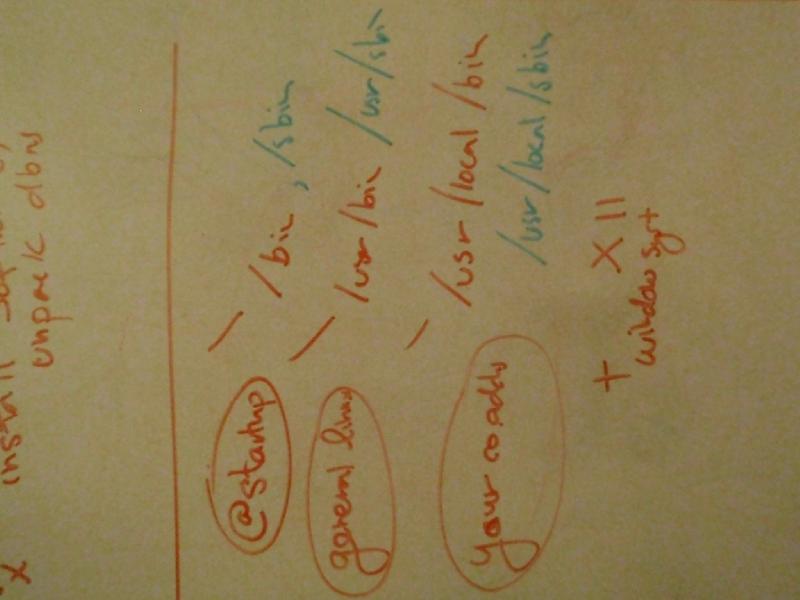 install
unpack dbns
@startup — /bin, /sbin
general linux — /usr/bin /usr/sbin
your co adds — /usr/local/bin
/usr/local/sbin
+ X11
window syst